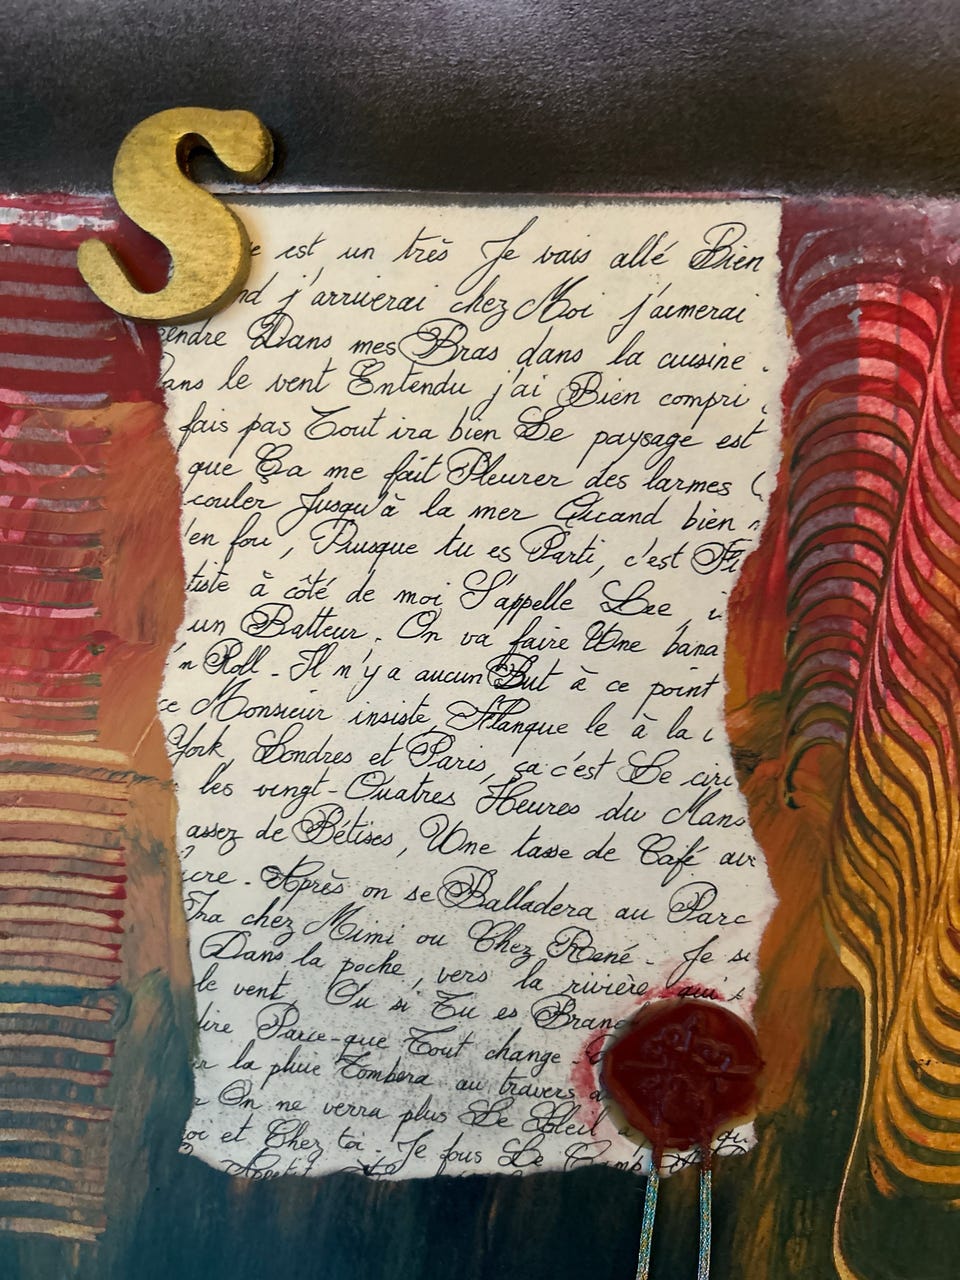 S
est un très Je vais allé Bien
nd j'arriverai chez Moi j'aimerai
endre Dans mes Bras dans la cuisine.
ans le vent Entendu j'ai Bien compri
fais pas Tout ira bien Le paysage est
que Ça me fait Pleurer des larmes
couler Jusqu'à la mer Quand bien
'en fou, Puisque tu es Parti, c'est Fi
tiste à côté de moi S'appelle Lee, i
un Batteur. On va faire Une bana
'n Roll - Il n'y a aucun But à ce point
ce Monsieur insiste, Flanque le à la
York Londres et Paris, ça c'est Le cir
les vingt-Quatres Heures du Mans
assez de Bêtises, Une tasse de Café av
cre - Après on se Balladera au Parc
Ira chez Mimi ou Chez René - Je su
Dans la poche, vers la rivière qui
le vent, Ou si Tu es Branc
dire Parce-que Tout change -
la pluie Tombera au travers
On ne verra plus Le Soleil
oi et Chez toi. Je fous Le Camp
Appetit